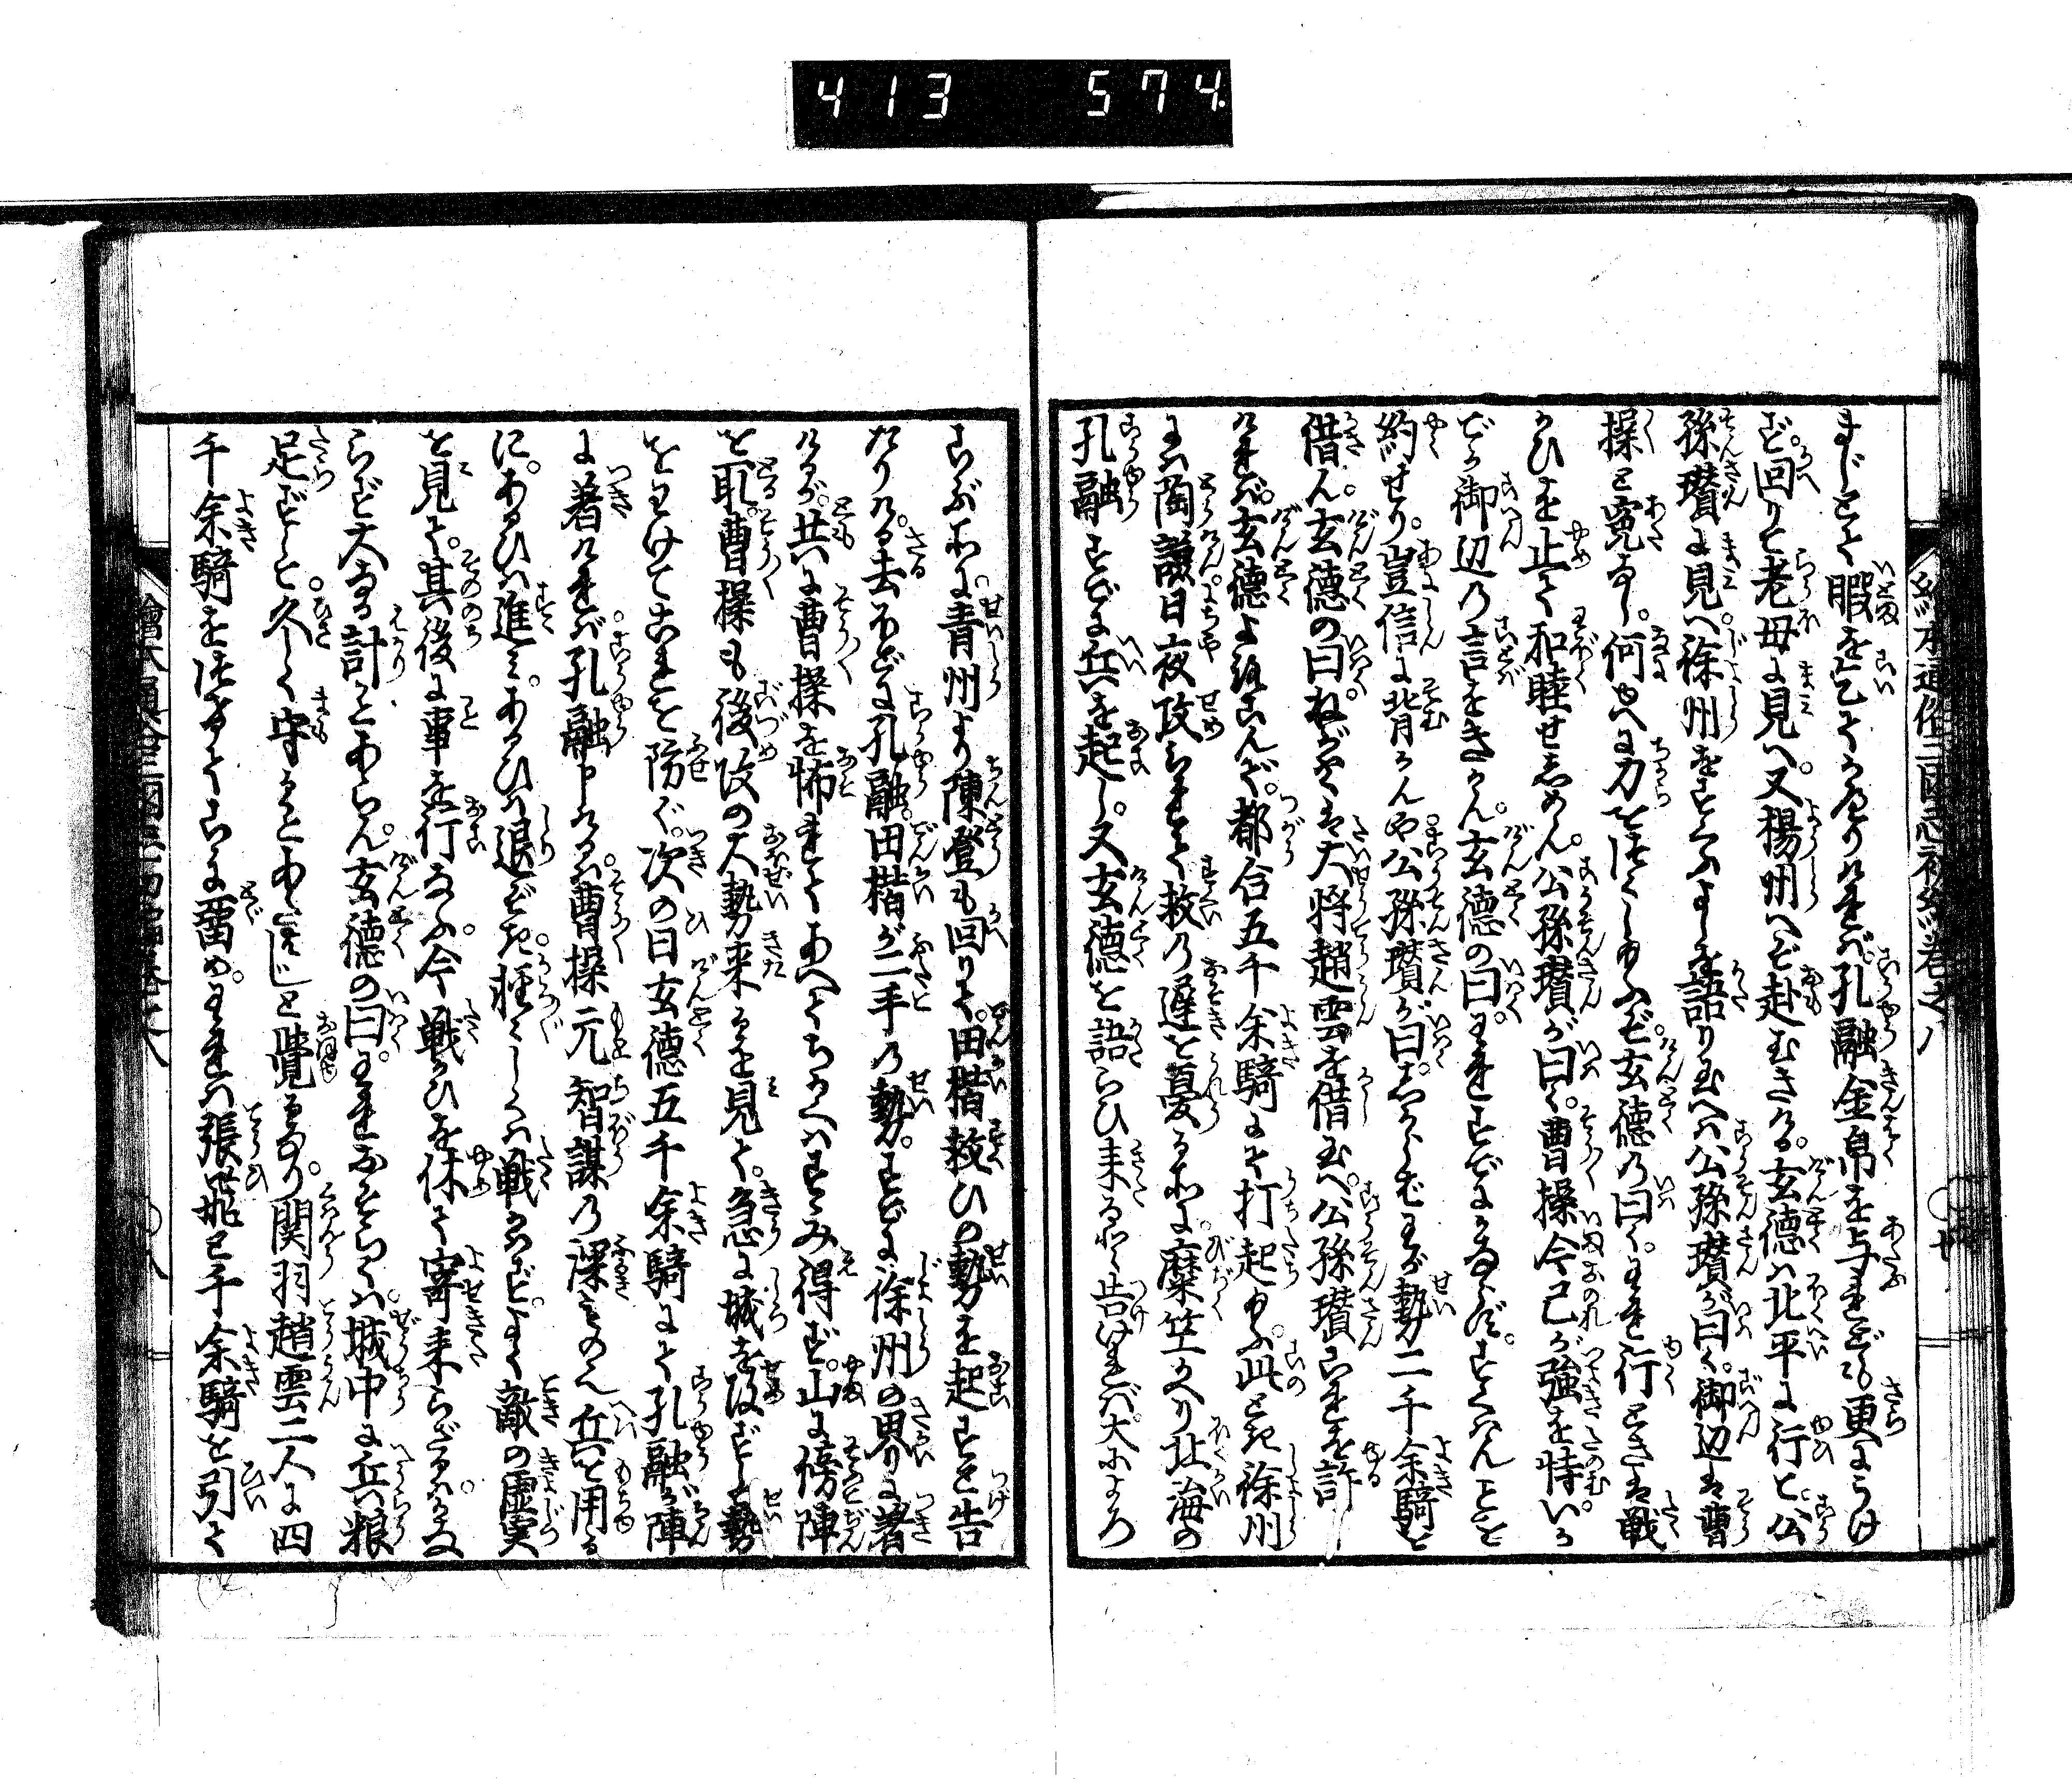 413 574
絵本通俗三国志初編巻之八
まじとて暇を乞てかへりければ孔融金帛を与ふれども更にうけ
ず。回りて老母に見へ。又楊州へぞ赴むきける。玄徳ハ北平に行て。公
孫瓚に見へ。徐州をすくふよしを語り玉へハ公孫瓚が曰く。御辺は曹
操と寃なし。何ゆへに力をつくし玉ふぞ。玄徳の曰く。われ行ときは戦
かひを止て和睦せしめん。公孫瓚が曰く。曹操今己が強を恃い。か
でか御辺の言をきかん。玄徳の曰。われすでにかれに。すくハんことを
約せり。豈信に背かんや。公孫瓚が曰。しからばわが勢二千余騎を
借ん。玄徳の曰。ねがハくは大将趙雲を借玉へ。公孫瓚これを許
ければ。玄徳よろこんで。都合五千余騎にて打起玉ふ。此とき徐州
にハ陶謙日夜攻られて救の遅を憂る所に。糜竺かへり北海の
孔融すでに兵を起し。又玄徳を語らひ来るよし告ければ大によろ
こぶ所に。青州より陳登も回りて。田楷救ひの勢を起すと告
たりける。去ほどに孔融。田楷が二手の勢。すでに徐州の界に著
けるが。共に曹操を怖れてあへてちかくハすゝみ得ず。山に傍陣
を取。曹操も後攻の大勢来るを見て。急に城を攻ず。勢
をわけてこれを防ぐ。次の日玄徳五千余騎にて孔融が陣
に著ければ。孔融申けるハ。曹操元智謀の深きのみ兵を用る
に。あるひハ進ミ。あるひハ退ぞき。軽々しくハ戦かハず。よく敵の虚実
を見て。其後に事を行なふ。今戦かひを休て寄来らざるハ。かな
らず大なる計ことあらん。玄徳の曰。われおそらくハ。城中に兵粮
足ずして。久しく守ることあたハじと覚るなり。関羽趙雲二人に四
千余騎をつけてこゝに畱め。われハ張飛と千余騎を引て